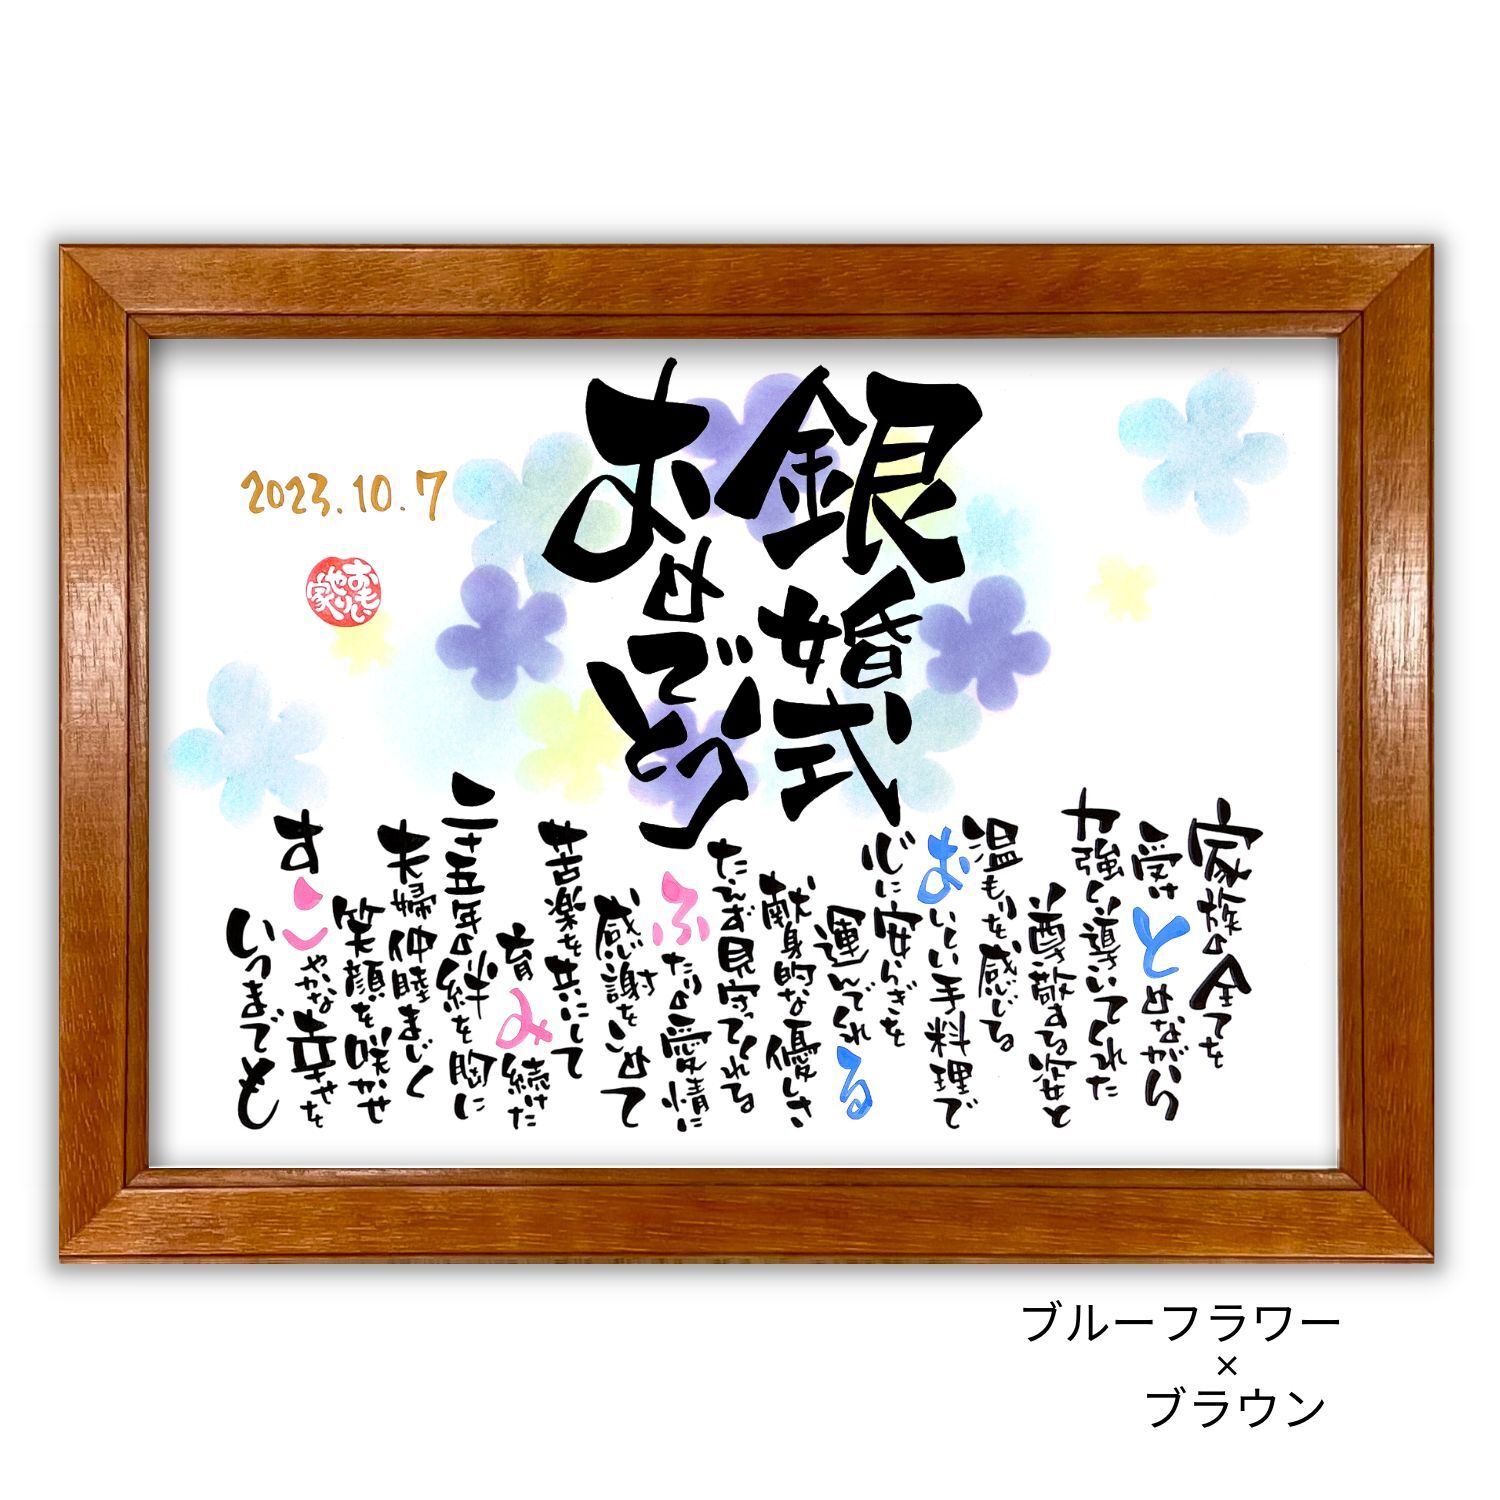 銀婚式
おめでとう
2023.10.7
おもい
やり
家
家族の全てを
受けとめながら
力強く導いてくれた
尊敬する姿と
温もりを感じる
おいしい手料理で
心に安らぎを
運んでくれる
献身的な優しさ
たえず見守ってくれてる
ふたりの愛情に
感謝をこめて
苦楽を共にして
育み続けた
二十五年の絆を胸に
夫婦仲睦まじく
笑顔を咲かせ
すこやかな幸せを
いつまでも
ブルーフラワー
×
ブラウン